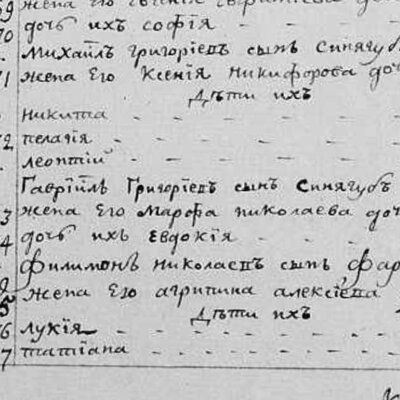 69 жена его Евгения
70 дочь ихъ софія
Михаилъ григоріевъ сынъ Синягубъ
71 жена Его Ксенія никифорова доч
Дѣти ихъ
никита
72 пелагія
леонтій
Гавріилъ Григоріевъ сынъ Синягубъ
3 жена Его Марѳа николаева доч
4 дочь ихъ Евдокія
филимонъ николаевъ сынъ фар
жена Его агрипина алексіева
5 Дѣти ихъ
6 лукія
7 татіана